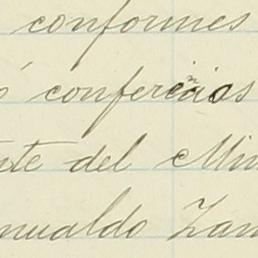 conformes
ó conferencias
nte del Min
nualdo Zam